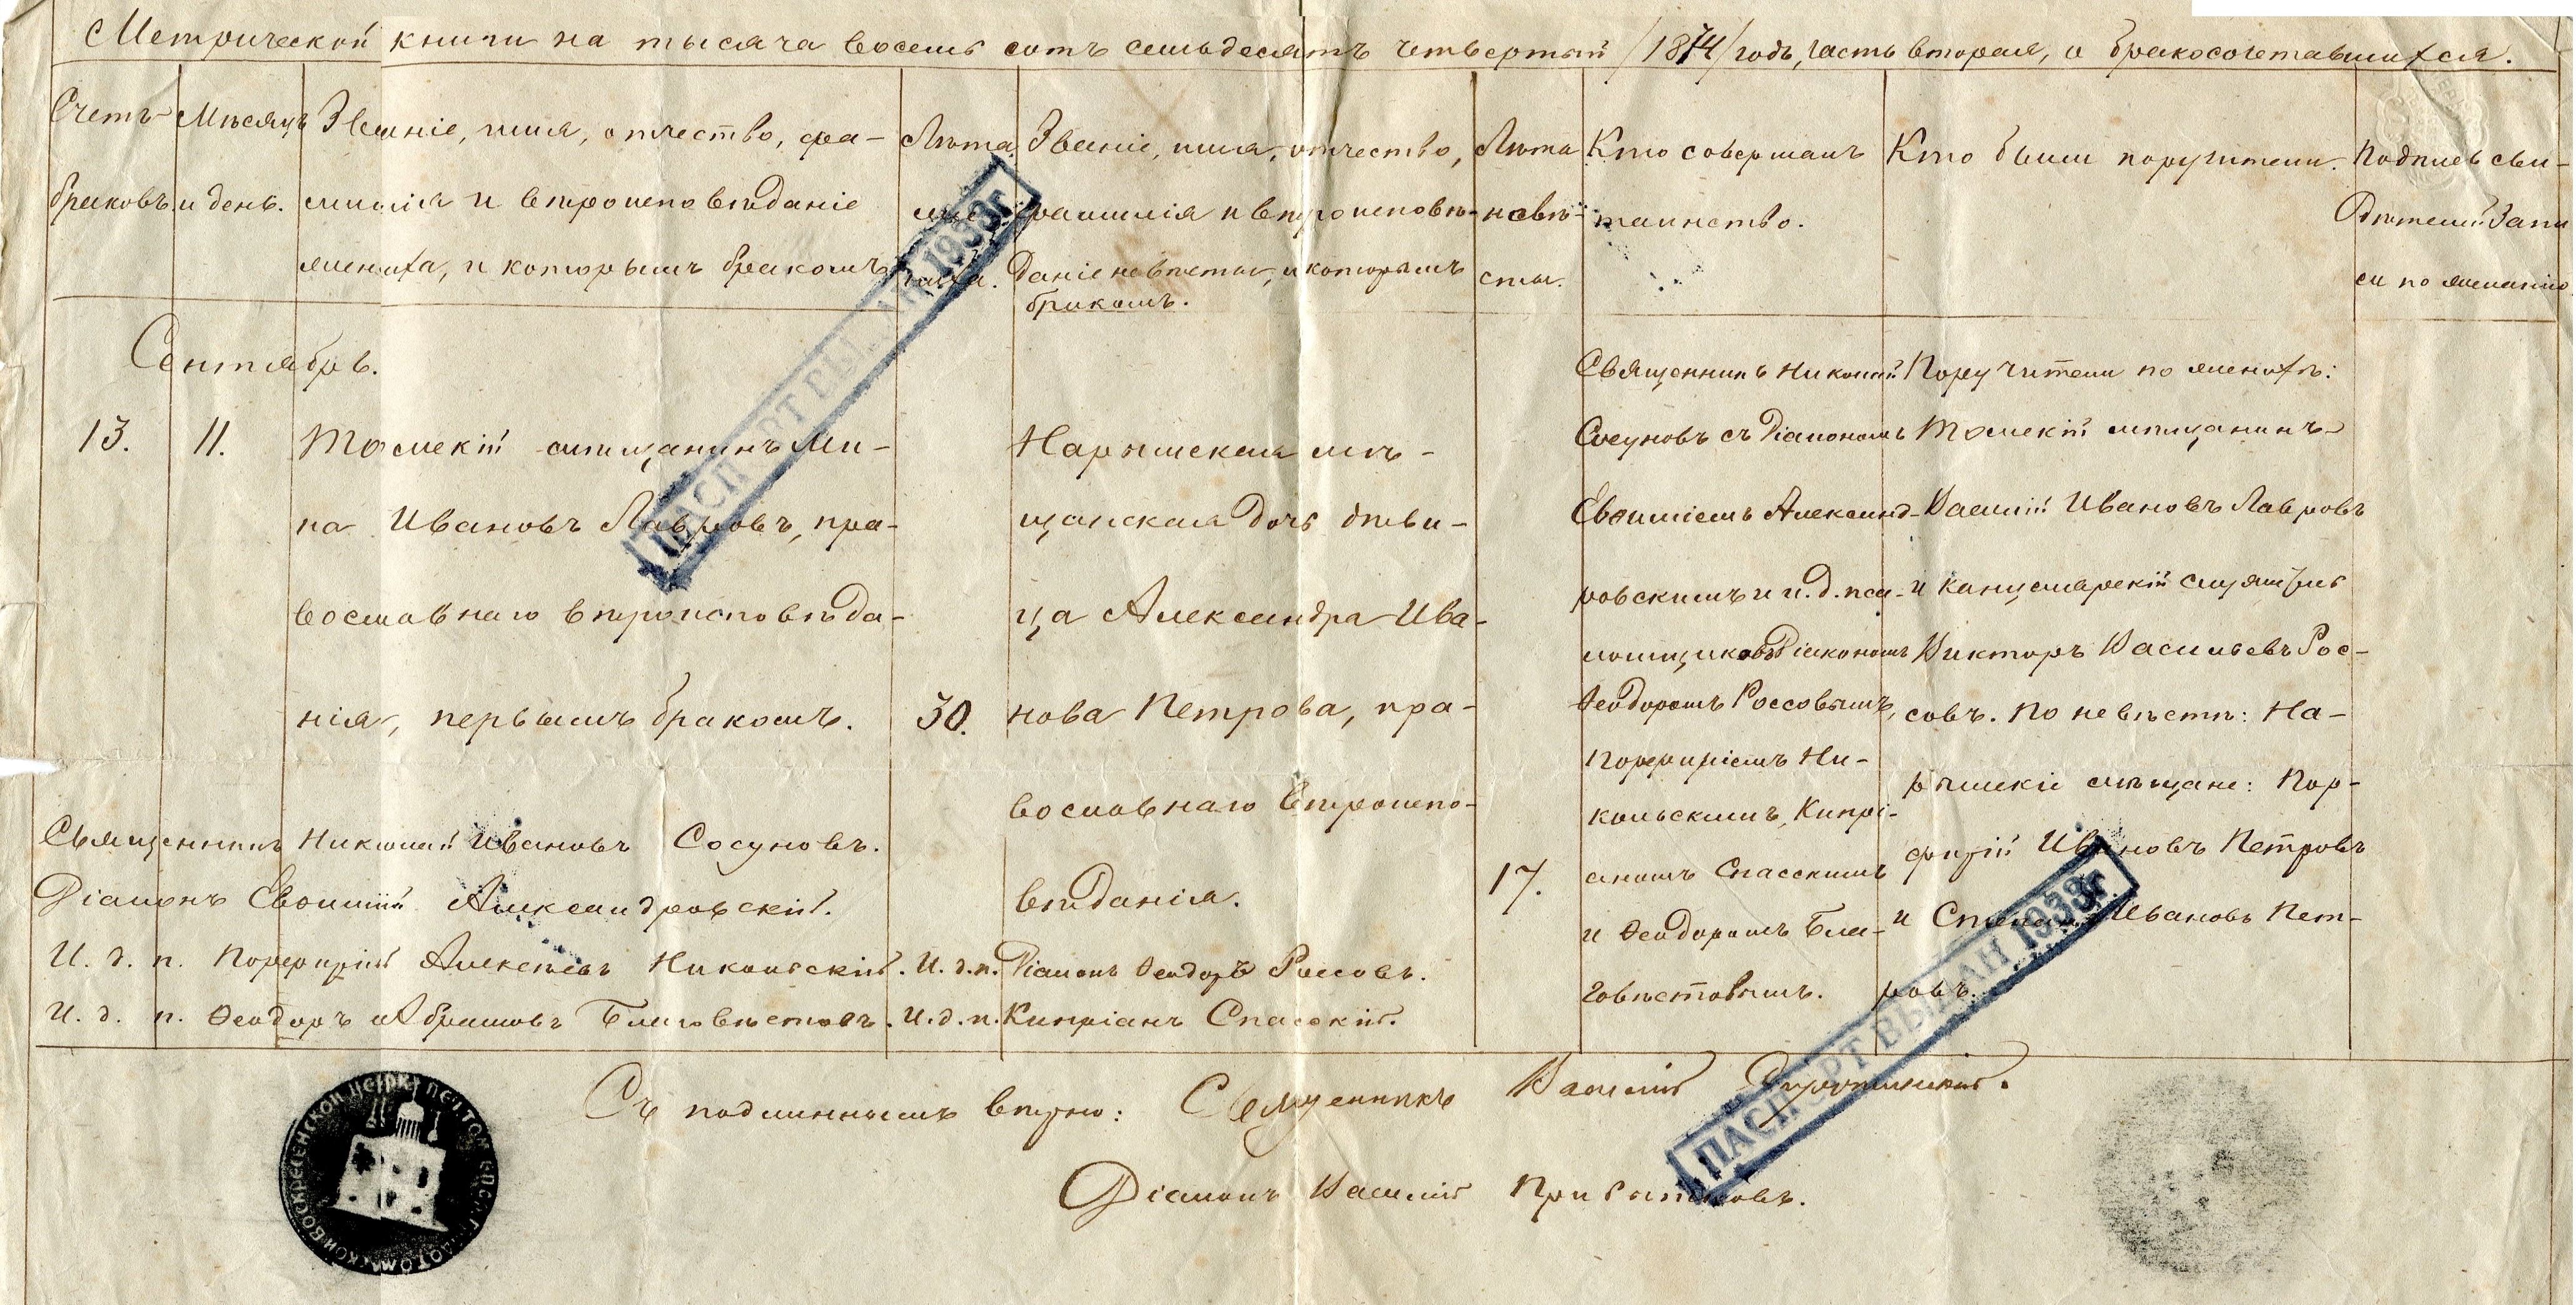 Метрической книги на тысяча восемь сотъ семьдесятъ четвертый /1874/ годъ, часть вторая, о бракосочетавшихся.
Счетъ браковъ.
Мѣсяцъ и день.
Званіе, имя, отчество, фа-
милія и вѣроисповѣданіе
жениха, и которымъ бракомъ
Лѣта
жениха.
Званіе, имя, отчество,
фамилія и вѣроисповѣ-
даніе невѣсты, и которымъ
бракомъ.
Лѣта
невѣ-
сты.
Кто совершалъ
таинство.
Кто были поручители.
Подпись сви-
дѣтелей запи
си по желанію
Сентябрь.
13.
11.
Томскій мѣщанинъ Ми-
на Ивановъ Лавровъ, пра-
вославнаго вѣроисповѣда-
нія, первымъ бракомъ.
30.
Нарымская мѣ-
щанская дочь дѣви-
ца Александра Ива-
нова Петрова, пра-
вославнаго вѣроиспо-
вѣданія.
17.
Священникъ Николай
Сосуновъ съ Діакономъ
Евѳиміемъ Александ-
ровскимъ и и. д. пса-
ломщиковъ Діакономъ
Ѳеодоромъ Россовымъ,
Порфиріемъ Ни-
кольскимъ, Кипрі-
аномъ Спасскимъ
и Ѳеодоромъ Бла-
говѣстовымъ.
Поручители по женихѣ:
Томскій мѣщанинъ
Василій Ивановъ Лавровъ
и канцелярскій служитель
Викторъ Васильевъ Рос-
совъ. По невѣстѣ: На-
рымскіе мѣщане: Пор-
фирій Ивановъ Петровъ
и Степанъ Ивановъ Пет-
ровъ.
Священникъ Николай Ивановъ Сосуновъ.
Діаконъ Евѳимій Александровскій.
И. д. п. Порфирій Алексѣевъ Никольскій. И. д. п. Діаконъ Ѳеодоръ Россовъ.
И. д. п. Ѳеодоръ Абрамовъ Благовѣстовъ. И. д. п. Кипріанъ Спасскій.
Съ подлиннымъ вѣрно: Священникъ Василій
Діаконъ Василій
ПАСПОРТ ВЫДАН 1933г.
ПАСПОРТ ВЫДАН 1933г.